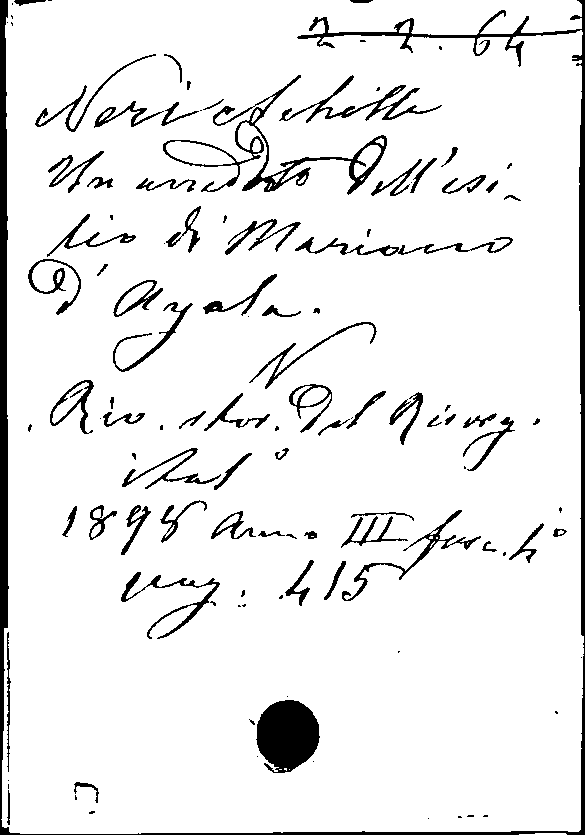 2. 2. 64
Neri Achille
Un aneddoto dell'esi-
lio di Mariano
d'Ayala.
N
Riv. stor. del Risorg.
ital°
1898 Anno III fasc. 4°
pag. 415